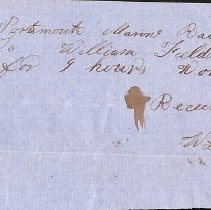 Portsmouth Marine Ra
To William Field
for 9 hours wo
Rece
W